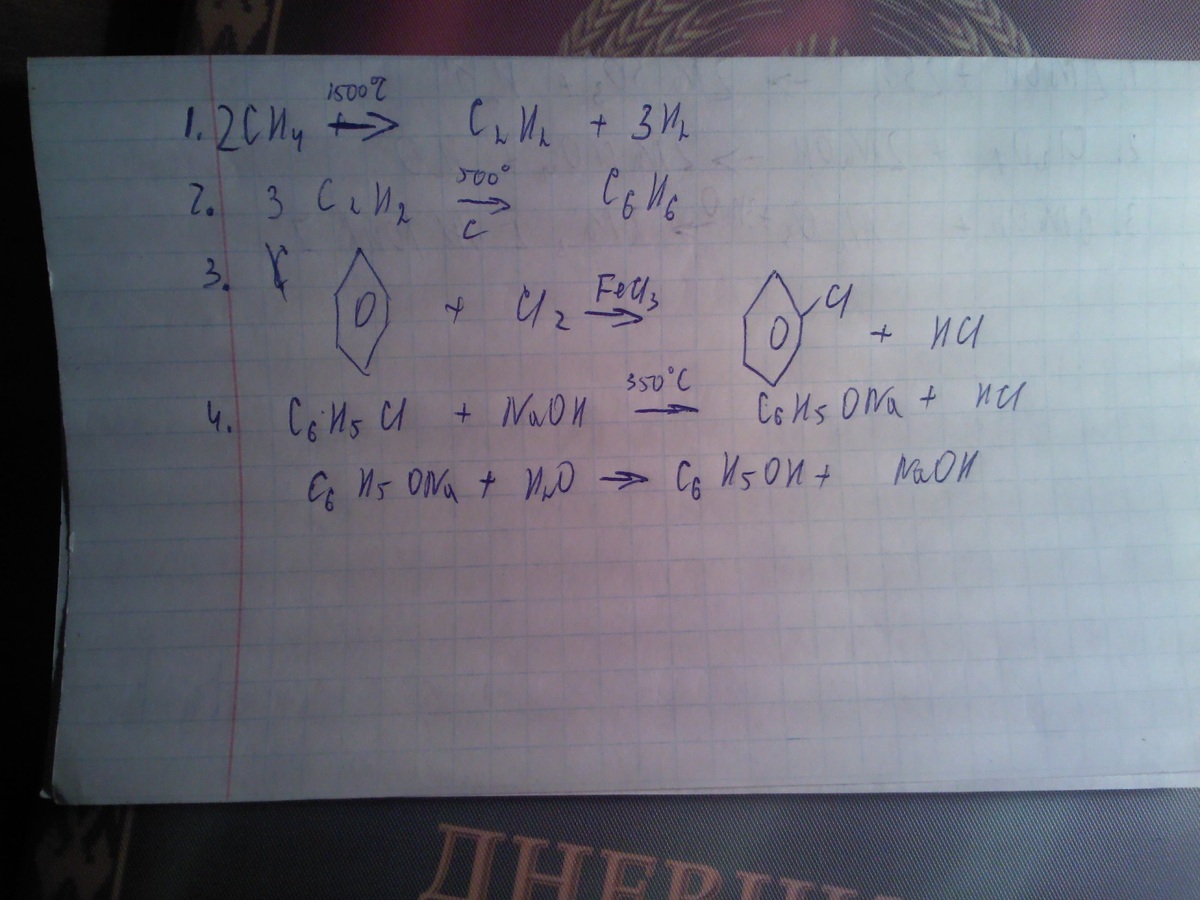 1. 2CH₄ 1500℃ → C₂H₂ + 3H₂
2. 3 C₂H₂ 500° → C C₆H₆
3. + Cl₂ FeCl₃ → Cl + HCl
4. C₆H₅Cl + NaOH 350°C → C₆H₅ONa + HCl
C₆H₅ONa + H₂O → C₆H₅OH + NaOH